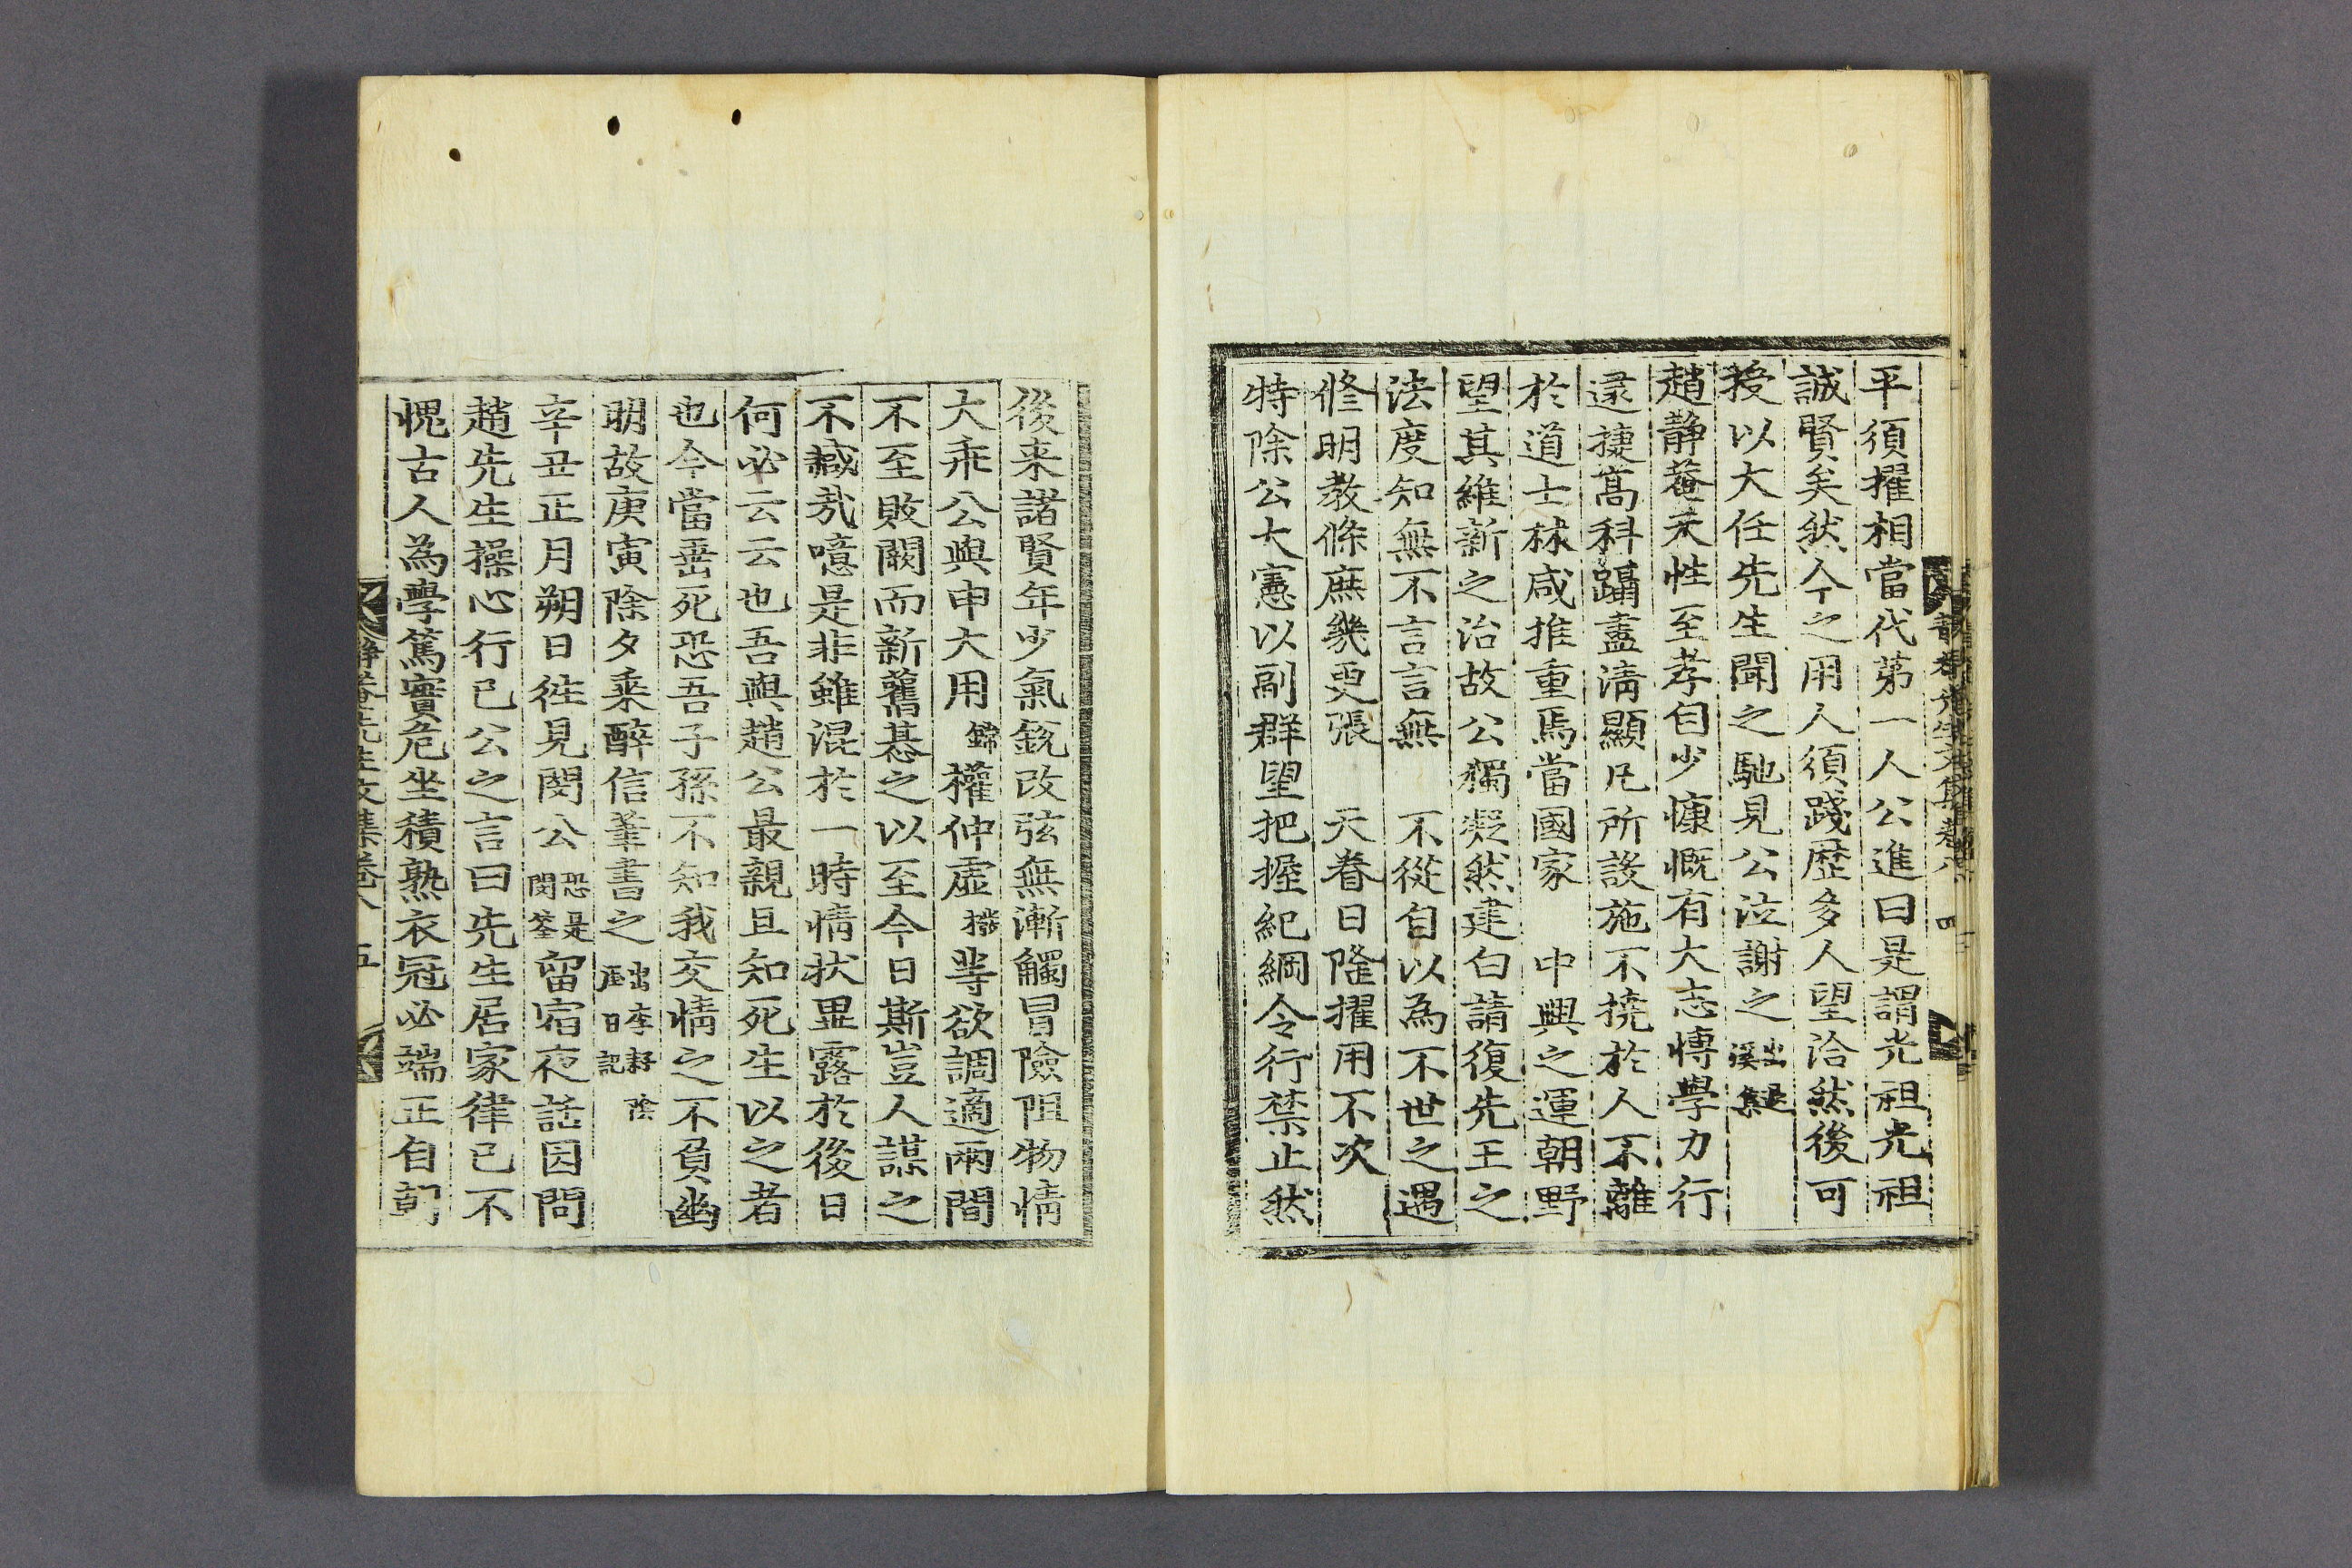 平須擢相當代第一人公進曰是謂光祖光祖
誠賢矣然今之用人須踐歷多人望洽然後可
授以大任先生聞之馳見公泣謝之出退溪集
趙靜菴天性至孝自少慷慨有大志博學力行
逯捷髙科躡盡淸顯凡所設施不撓於人不離
於道士林咸推重焉當國家 中興之運朝野
望其維新之治故公獨凝然建白請復先王之
法度知無不言言無 不從自以為不世之遇
修明教條庶幾更張 天眷日隆擢用不次
特除公大憲以副群望把握紀綱令行禁止然
後来諸賢年少氣銳改弦無漸觸冒險阻物情
大乖公與申大用鐊權仲虛撥䓁欲調適兩間
不至敗闕而新舊惎之以至今日斯豈人謀之
不臧㢤噫是非雖混於一時情狀畢露於後日
何必云云也吾與趙公最親且知死生以之者
也今當垂死恐吾子孫不知我交情之不負幽
明故庚寅除夕乗醉信筆書之出李耔陰崖日記
辛丑正月朔日徃見閔公恐是閔荃留宿夜話因問
趙先生操心行己公之言曰先生居家律己不
愧古人為學篤實危坐積熟衣冠必端正自朝
靜菴先生文集卷八 五